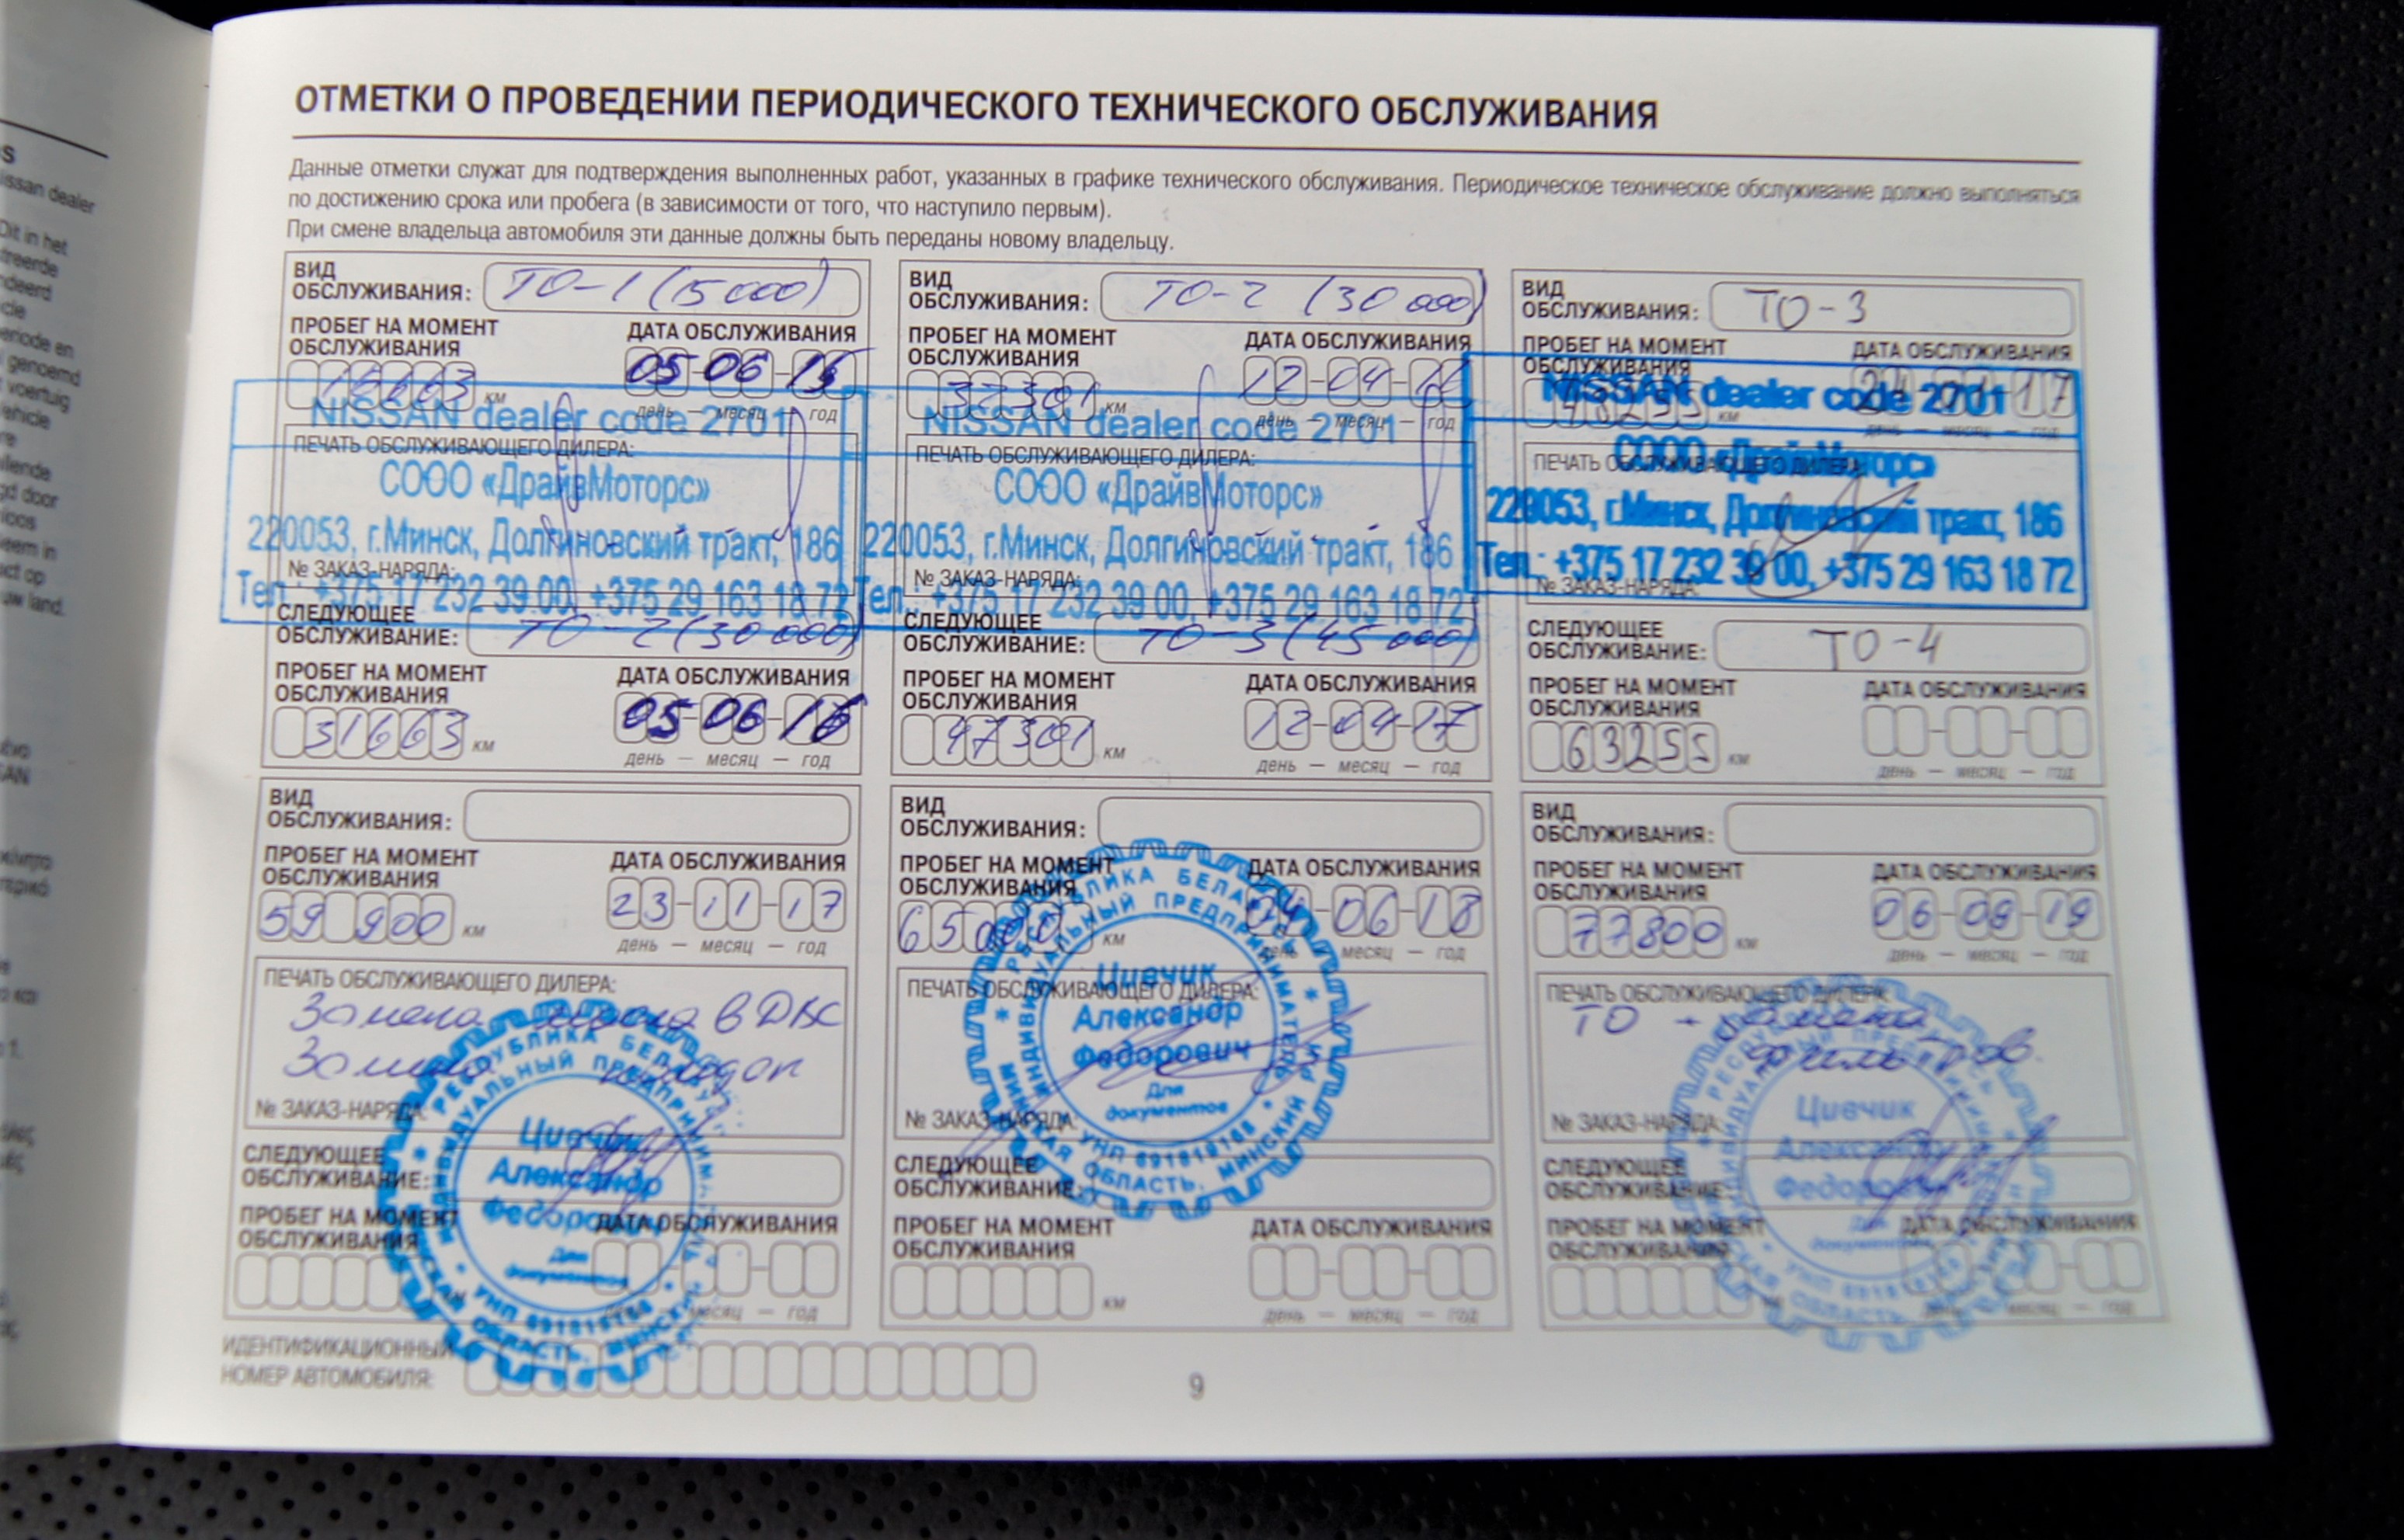 ОТМЕТКИ О ПРОВЕДЕНИИ ПЕРИОДИЧЕСКОГО ТЕХНИЧЕСКОГО ОБСЛУЖИВАНИЯ
Данные отметки служат для подтверждения выполненных работ, указанных в графике технического обслуживания. Периодическое техническое обслуживание должно выполняться
по достижению срока или пробега (в зависимости от того, что наступило первым).
При смене владельца автомобиля эти данные должны быть переданы новому владельцу.
ВИД
ОБСЛУЖИВАНИЯ: ТО-1 (15 000)
ПРОБЕГ НА МОМЕНТ
ОБСЛУЖИВАНИЯ
ДАТА ОБСЛУЖИВАНИЯ
16663 км
05-06-15
день — месяц — год
NISSAN dealer code 2701
ПЕЧАТЬ ОБСЛУЖИВАЮЩЕГО ДИЛЕРА:
СООО «ДрайвМоторс»
220053, г.Минск, Долгиновский тракт, 186
№ ЗАКАЗ-НАРЯДА:
Тел.: +375 17 232 39 00, +375 29 163 18 72
СЛЕДУЮЩЕЕ
ОБСЛУЖИВАНИЕ: ТО-2 (30 000)
ПРОБЕГ НА МОМЕНТ
ОБСЛУЖИВАНИЯ
ДАТА ОБСЛУЖИВАНИЯ
31663 км
05-06-16
день — месяц — год
ВИД
ОБСЛУЖИВАНИЯ: ТО-2 (30 000)
ПРОБЕГ НА МОМЕНТ
ОБСЛУЖИВАНИЯ
ДАТА ОБСЛУЖИВАНИЯ
32301 км
12-04-16
день — месяц — год
NISSAN dealer code 2701
ПЕЧАТЬ ОБСЛУЖИВАЮЩЕГО ДИЛЕРА:
СООО «ДрайвМоторс»
220053, г.Минск, Долгиновский тракт, 186
№ ЗАКАЗ-НАРЯДА:
Тел.: +375 17 232 39 00, +375 29 163 18 72
СЛЕДУЮЩЕЕ
ОБСЛУЖИВАНИЕ: ТО-3 (45 000)
ПРОБЕГ НА МОМЕНТ
ОБСЛУЖИВАНИЯ
ДАТА ОБСЛУЖИВАНИЯ
47301 км
12-04-17
день — месяц — год
ВИД
ОБСЛУЖИВАНИЯ: ТО-3
ПРОБЕГ НА МОМЕНТ
ОБСЛУЖИВАНИЯ
ДАТА ОБСЛУЖИВАНИЯ
48255 км
17
день — месяц — год
NISSAN dealer code 2701
ПЕЧАТЬ ОБСЛУЖИВАЮЩЕГО ДИЛЕРА:
СООО «ДрайвМоторс»
220053, г.Минск, Долгиновский тракт, 186
Тел.: +375 17 232 39 00, +375 29 163 18 72
№ ЗАКАЗ-НАРЯДА:
СЛЕДУЮЩЕЕ
ОБСЛУЖИВАНИЕ: ТО-4
ПРОБЕГ НА МОМЕНТ
ОБСЛУЖИВАНИЯ
ДАТА ОБСЛУЖИВАНИЯ
63255 км
день — месяц — год
ВИД
ОБСЛУЖИВАНИЯ:
ПРОБЕГ НА МОМЕНТ
ОБСЛУЖИВАНИЯ
ДАТА ОБСЛУЖИВАНИЯ
59 900 км
23-11-17
день — месяц — год
ПЕЧАТЬ ОБСЛУЖИВАЮЩЕГО ДИЛЕРА:
Замена масла в ДВС
Замена колодок
№ ЗАКАЗ-НАРЯДА:
РЕСПУБЛИКА БЕЛАРУСЬ
ИНДИВИДУАЛЬНЫЙ ПРЕДПРИНИМАТЕЛЬ
Цивчик
Александр
Федорович
Для
документов
МИНСКАЯ ОБЛАСТЬ, МИНСКИЙ
СЛЕДУЮЩЕЕ
ОБСЛУЖИВАНИЕ:
ПРОБЕГ НА МОМЕНТ
ОБСЛУЖИВАНИЯ
ДАТА ОБСЛУЖИВАНИЯ
км
день — месяц — год
ВИД
ОБСЛУЖИВАНИЯ:
ПРОБЕГ НА МОМЕНТ
ОБСЛУЖИВАНИЯ
ДАТА ОБСЛУЖИВАНИЯ
65000 км
04-06-18
день — месяц — год
ПЕЧАТЬ ОБСЛУЖИВАЮЩЕГО ДИЛЕРА:
РЕСПУБЛИКА БЕЛАРУСЬ
ИНДИВИДУАЛЬНЫЙ ПРЕДПРИНИМАТЕЛЬ
Цивчик
Александр
Федорович
Для
документов
МИНСКАЯ ОБЛАСТЬ, МИНСКИЙ Р-Н
№ ЗАКАЗ-НАРЯДА:
СЛЕДУЮЩЕЕ
ОБСЛУЖИВАНИЕ:
ПРОБЕГ НА МОМЕНТ
ОБСЛУЖИВАНИЯ
ДАТА ОБСЛУЖИВАНИЯ
км
день — месяц — год
ВИД
ОБСЛУЖИВАНИЯ:
ПРОБЕГ НА МОМЕНТ
ОБСЛУЖИВАНИЯ
ДАТА ОБСЛУЖИВАНИЯ
77800 км
06-09-19
день — месяц — год
ПЕЧАТЬ ОБСЛУЖИВАЮЩЕГО ДИЛЕРА:
ТО - замена
фильтров.
№ ЗАКАЗ-НАРЯДА:
Цивчик
Александр
Федорович
Для
документов
СЛЕДУЮЩЕЕ
ОБСЛУЖИВАНИЕ:
ПРОБЕГ НА МОМЕНТ
ОБСЛУЖИВАНИЯ
ДАТА ОБСЛУЖИВАНИЯ
день — месяц — год
ИДЕНТИФИКАЦИОННЫЙ
НОМЕР АВТОМОБИЛЯ:
9